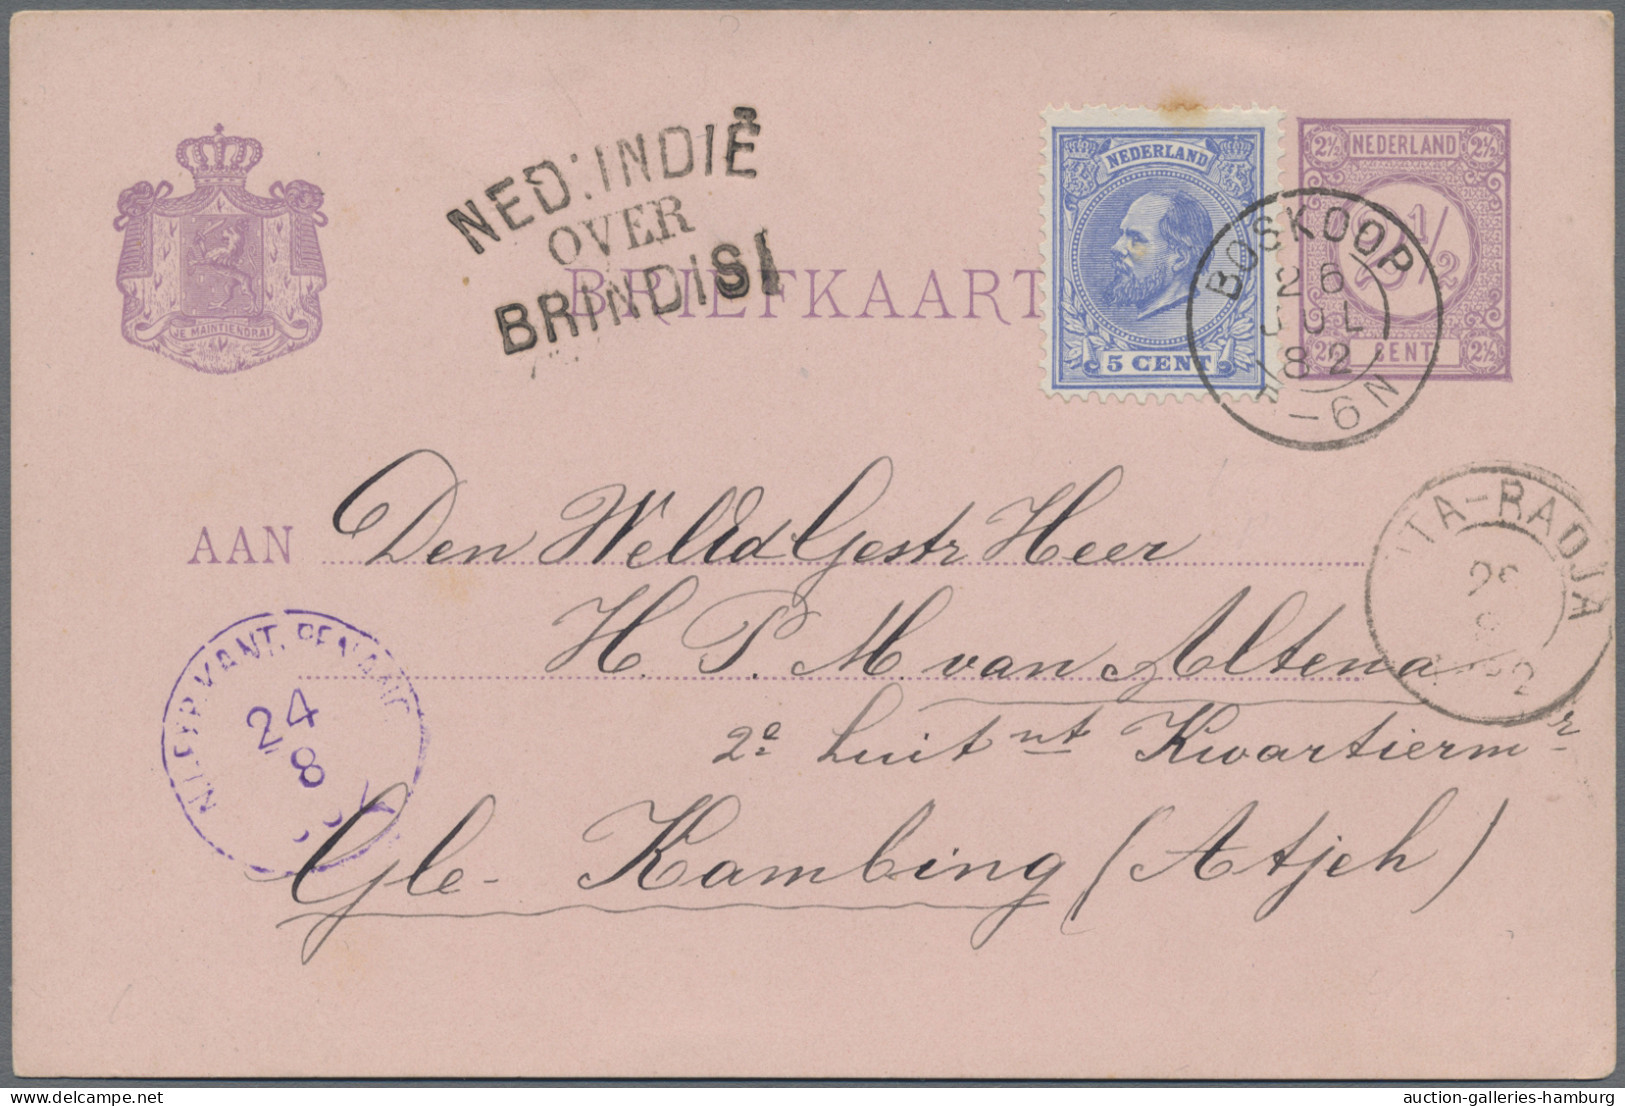 NED. INDIË
OVER
BRINDISI
BRIEFKAART
JE MAINTIENDRAI
NEDERLAND
5 CENT
2½ NEDERLAND 2½
2 1/2
2½ CENT 2½
BOSKOOP
26
JUL
82
-6N
AAN Den WelEdGestr Heer
H. P. M. van Altena
2e Luitnt Kwartiermr
Gle- Kambing (Atjeh)
TA-RADJA
N.I. AGENT. PENANG
24
8
auction-galleries-hamburg